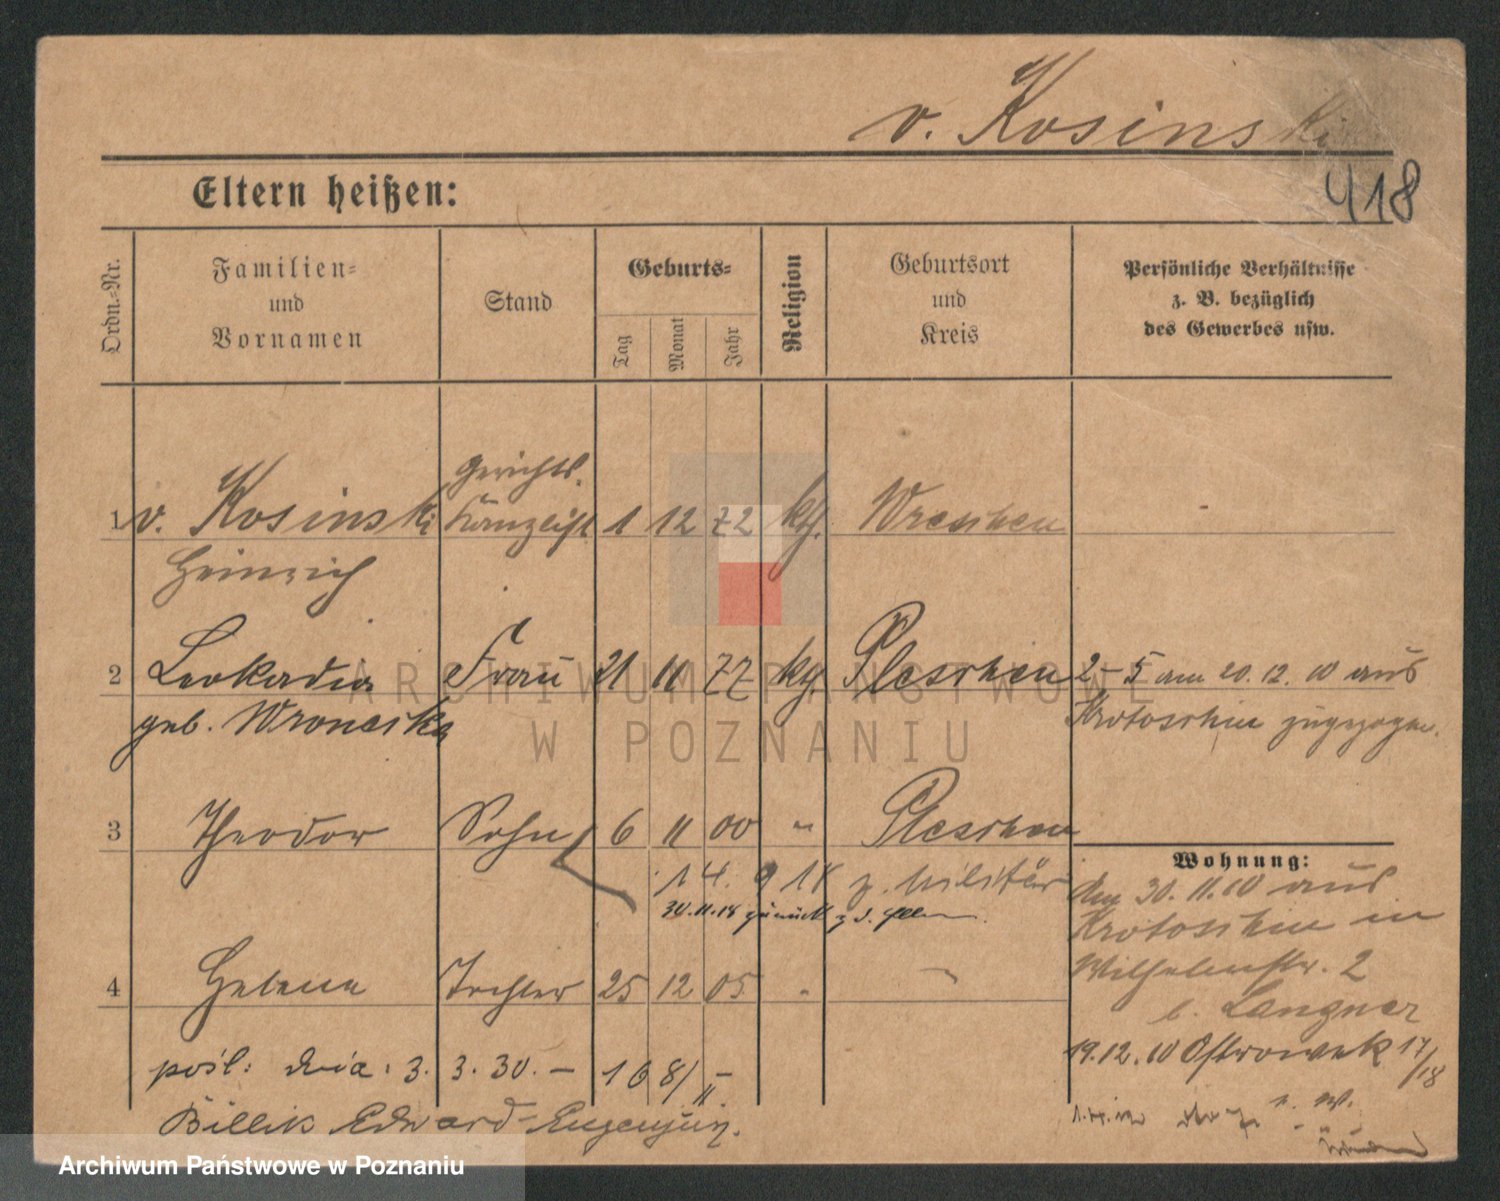 v. Kosinski
418
Eltern heißen:
Ordn.-Nr.
Familien-
und
Vornamen
Stand
Geburts-
Tag
Monat
Jahr
Religion
Geburtsort
und
Kreis
Persönliche Verhältnisse
z. B. bezüglich
des Gewerbes usw.
Gerichts-
1 v. Kosinski Kanzlist 1 12 72 kth. Wreschen -
Heinrich
2 Leokadia Frau 21 11 77 kth. Pleschen 2-5 am 20.12.10 aus
geb. Wronecka Krotoschin zugezogen.
3 Theodor Sohn 6 11 00 " Pleschen
14. 9 18 z. Militär
30.11.18 zurück z. d.
4 Helene Tochter 25 12 05 "
Wohnung:
den 30.11.10 aus
Krotoschin in
Wilhelmstr. 2
b. Langner
19.12.10 Ostrowek 17/18
pośl: dnia: 3. 3. 30. - 168/II-
Billik Edward-Eugenjusz.
ARCHIWUM PAŃSTWOWE
W POZNANIU
Archiwum Państwowe w Poznaniu